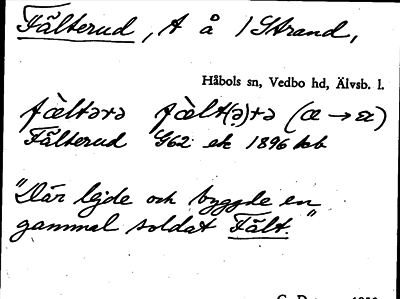 Fälterud, t å 1 Strand,
Håbols sn, Vedbo hd, Älvsb. l.
fæ̀ltərə fæ̀lt(ə)rə (æ → a)
Fälterud G62 ek 1896 kb
"Där lejde och byggde en
gammal soldat Fält."